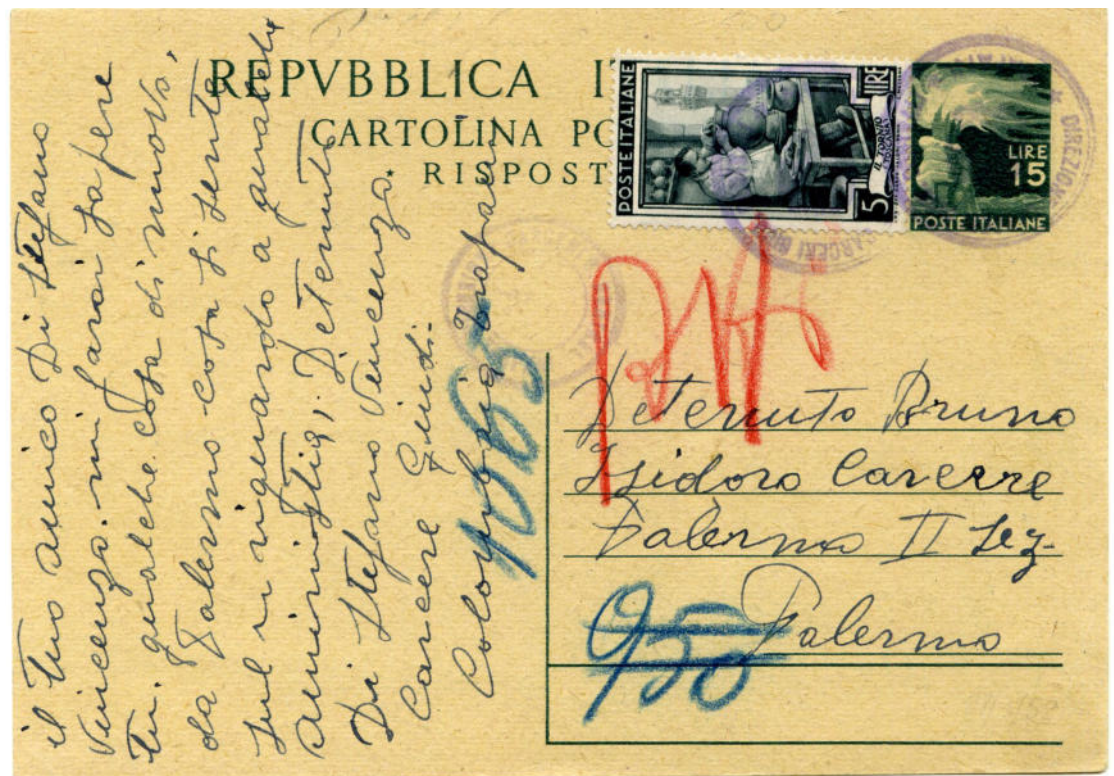 REPVBBLICA I
CARTOLINA PO
RISPOST
POSTE ITALIANE
LIRE
5
IL TORNIO
LIRE
15
POSTE ITALIANE
DIREZION
CARCERI GIU
il tuo amico Di Stefano
Vincenzo. mi farai sapere
tu. qualche cosa di nuovo,
da Palermo cosa si sente
sul riguardo a qualche
amninistia, Detenuto
Di Stefano Vincenzo
Carcere Giudi.
Colombaia Trapani
Detenuto Bruno
Isidoro Carcere
Palermo II Sez-
Palermo
950